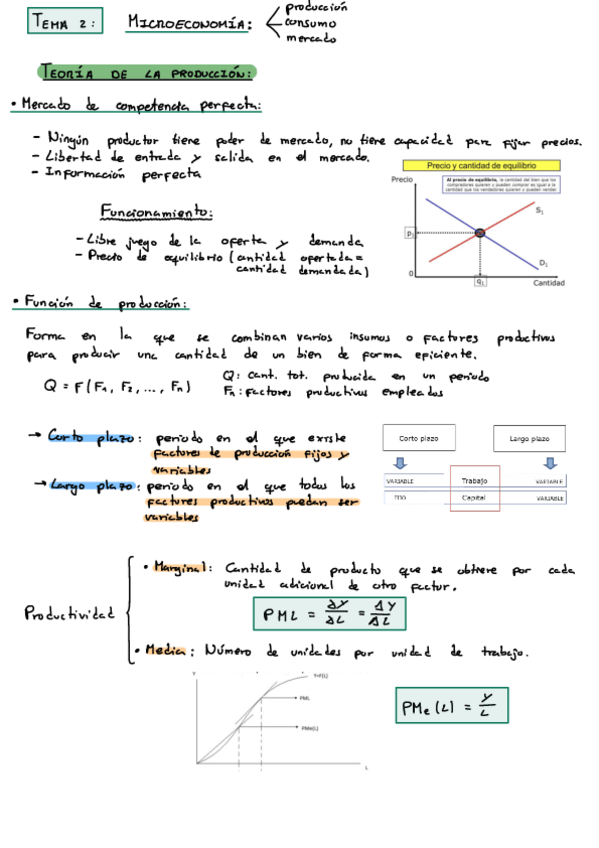 TEMA 2:
MICROECONOMÍA:
producción
consumo
mercado
TEORÍA DE LA PRODUCCIÓN:
• Mercado de competencia perfecta:
- Ningún productor tiene poder de mercado, no tiene capacidad para fijar precios.
- Libertad de entrada y salida en el mercado.
- Información perfecta
Funcionamiento:
- Libre juego de la oferta y demanda
- Precio de equilibrio (cantidad ofertada =
cantidad demandada)
Precio y cantidad de equilibrio
Precio
Al precio de equilibrio, la cantidad del bien que los
compradores quieren y pueden comprar es igual a la
cantidad que los vendedores quieren y pueden vender
S₁
p₁
D₁
0
q₁
Cantidad
• Función de producción:
Forma en la que se combinan varios insumos o factores productivos
para producir una cantidad de un bien de forma eficiente.
Q = F(F₁, F₂, ..., Fn)
Q: cant. tot. producida en un periodo
Fn: factores productivos empleados
→ Corto plazo: periodo en el que existe
factores de producción fijos y
variables
→ Largo plazo: periodo en el que todos los
factores productivos puedan ser
variables
Corto plazo
Largo plazo
VARIABLE
Trabajo
VARIABLE
FIJO
Capital
VARIABLE
Productividad
• Marginal: Cantidad de producto que se obtiene por cada
unidad adicional de otro factor.
PML = ∂Y/∂L = ΔY/ΔL
• Media: Número de unidades por unidad de trabajo.
Y
Y=f(L)
PML
PMe(L)
L
PMe (L) = Y/L